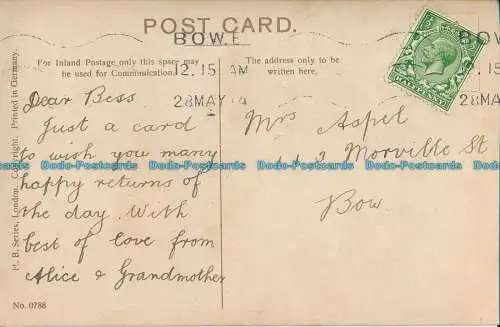 POST CARD.
BOW.E
12.15 AM
28MAY 14
For Inland Postage only this space may
be used for Communication.
The address only to be
written here.
Dear Bess
Just a card
to wish you many
happy returns of
the day. With
best of love from
Alice & Grandmother
Mrs Aspel
Morville St
Bow.
P. B. Series, London. Copyright. Printed in Germany.
No. 0788
HALFPENNY
28MAY
Dodo-Postcards Dodo-Postcards Dodo-Postcards Dodo-Postcards Dodo-Postcards